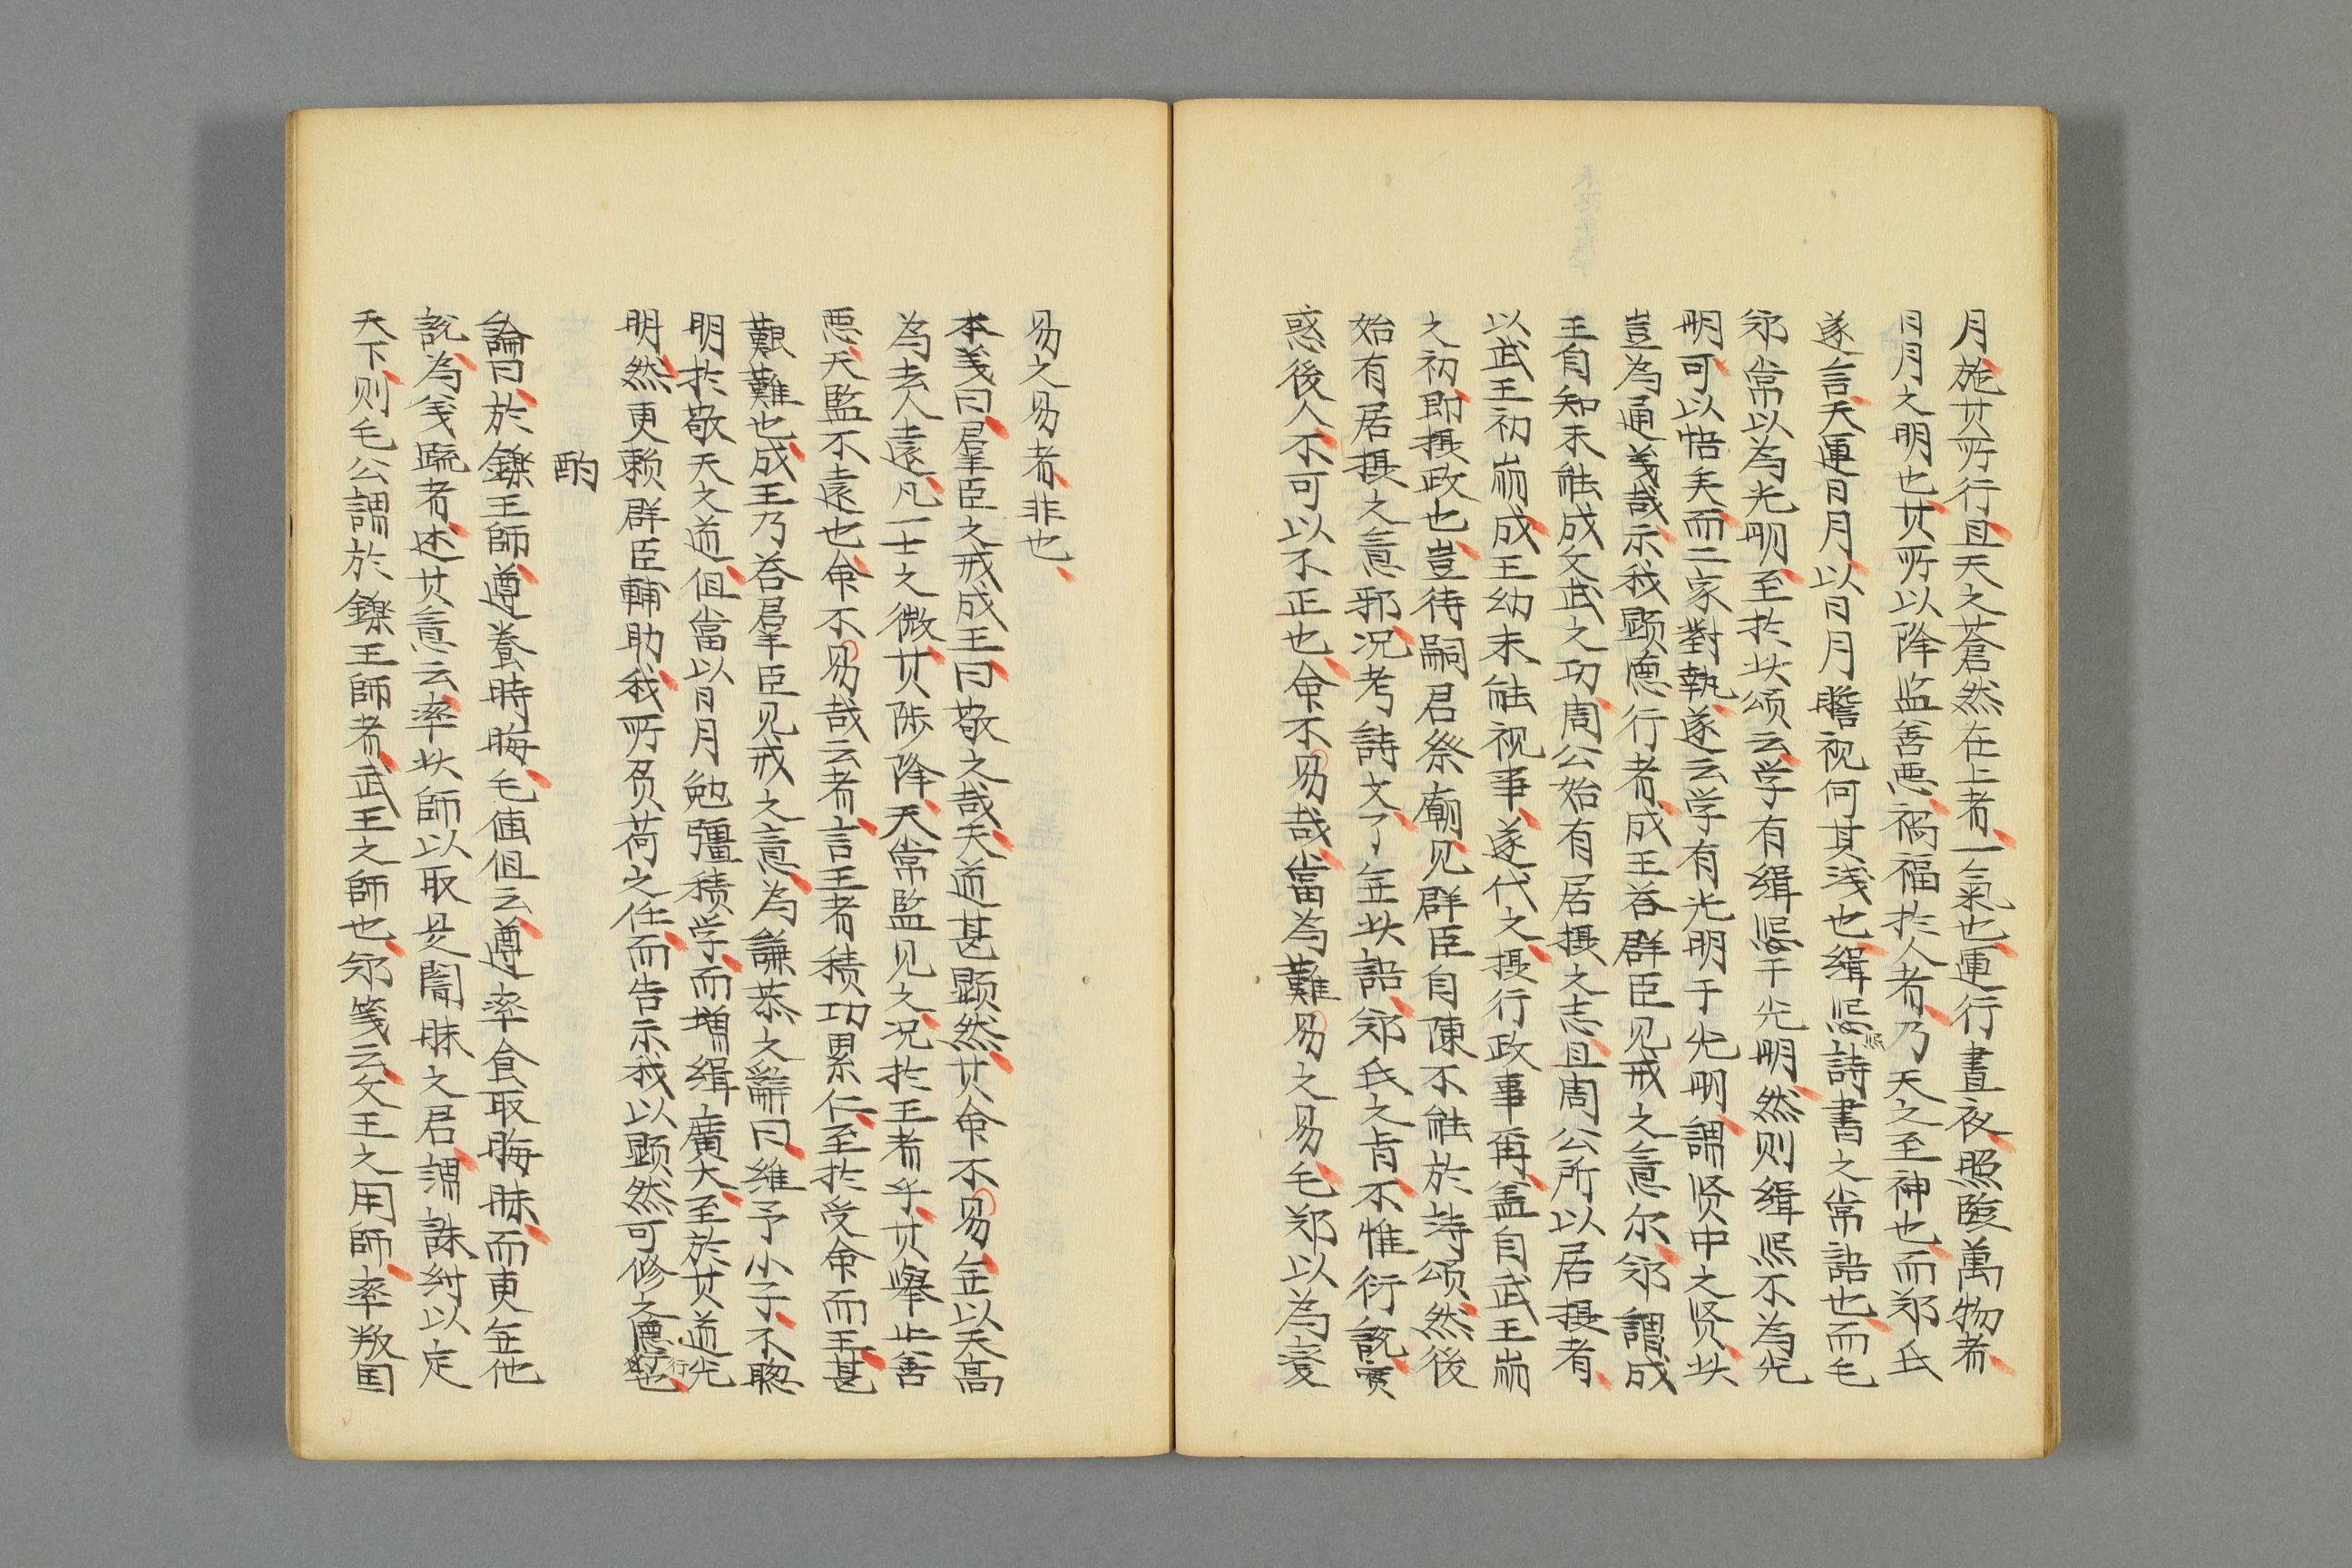 月施其所行且天之蒼然在上者一氣也運行晝夜照臨萬物者
日月之明也其所以降监善悪禍福於人者乃天之至神也而郑氏
遂言天運日月以日月瞻视何其浅也缉熙詩書之常語也而毛
郑常以為光明至於此颂云学有缉熙于光明然则缉熙不為光
明可以悟矣而二家對執遂云学有光明于光明謂贤中之贤此
豈為通義哉示我顕德行者成王荅群臣见戒之意尔郑謂成
王自知未能成文武之功周公始有居摄之志且周公所以居摄者
以武王初崩成王幼未能视事遂代之摄行政事再盖自武王崩
之初即摄政也豈待嗣君祭廟见群臣自陳不能於詩颂然後
始有居摄之意邪况考詩文了無此語郑氏之肯不惟衍說實
惑後人不可以不正也命不易哉當為難易之易毛郑以為變
易之易者非也
本義曰羣臣之戒成王曰敬之哉天道甚顕然其命不易無以天高
為去人遠凡一士之微其陟降天常監见之况於王者乎其舉止善
悪天監不遠也命不易哉云者言王者積功累仁至於受命而王甚
艱難也成王乃荅羣臣见戒之意為謙恭之辭曰維予小子不聦
明於敬天之道但當以日月勉彊積学而増缉廣大至於其道光
明然更赖群臣輔助我所负荷之任而告示我以顕然可修之德行也
酌
論曰於鑠王師遵養時晦毛傳但云遵率養取晦昧而更無他
說為笺疏者述其意云率此師以取是闇昧之君謂誅紂以定
天下则毛公謂於鑠王師者武王之師也郑箋云文王之用師率叛国